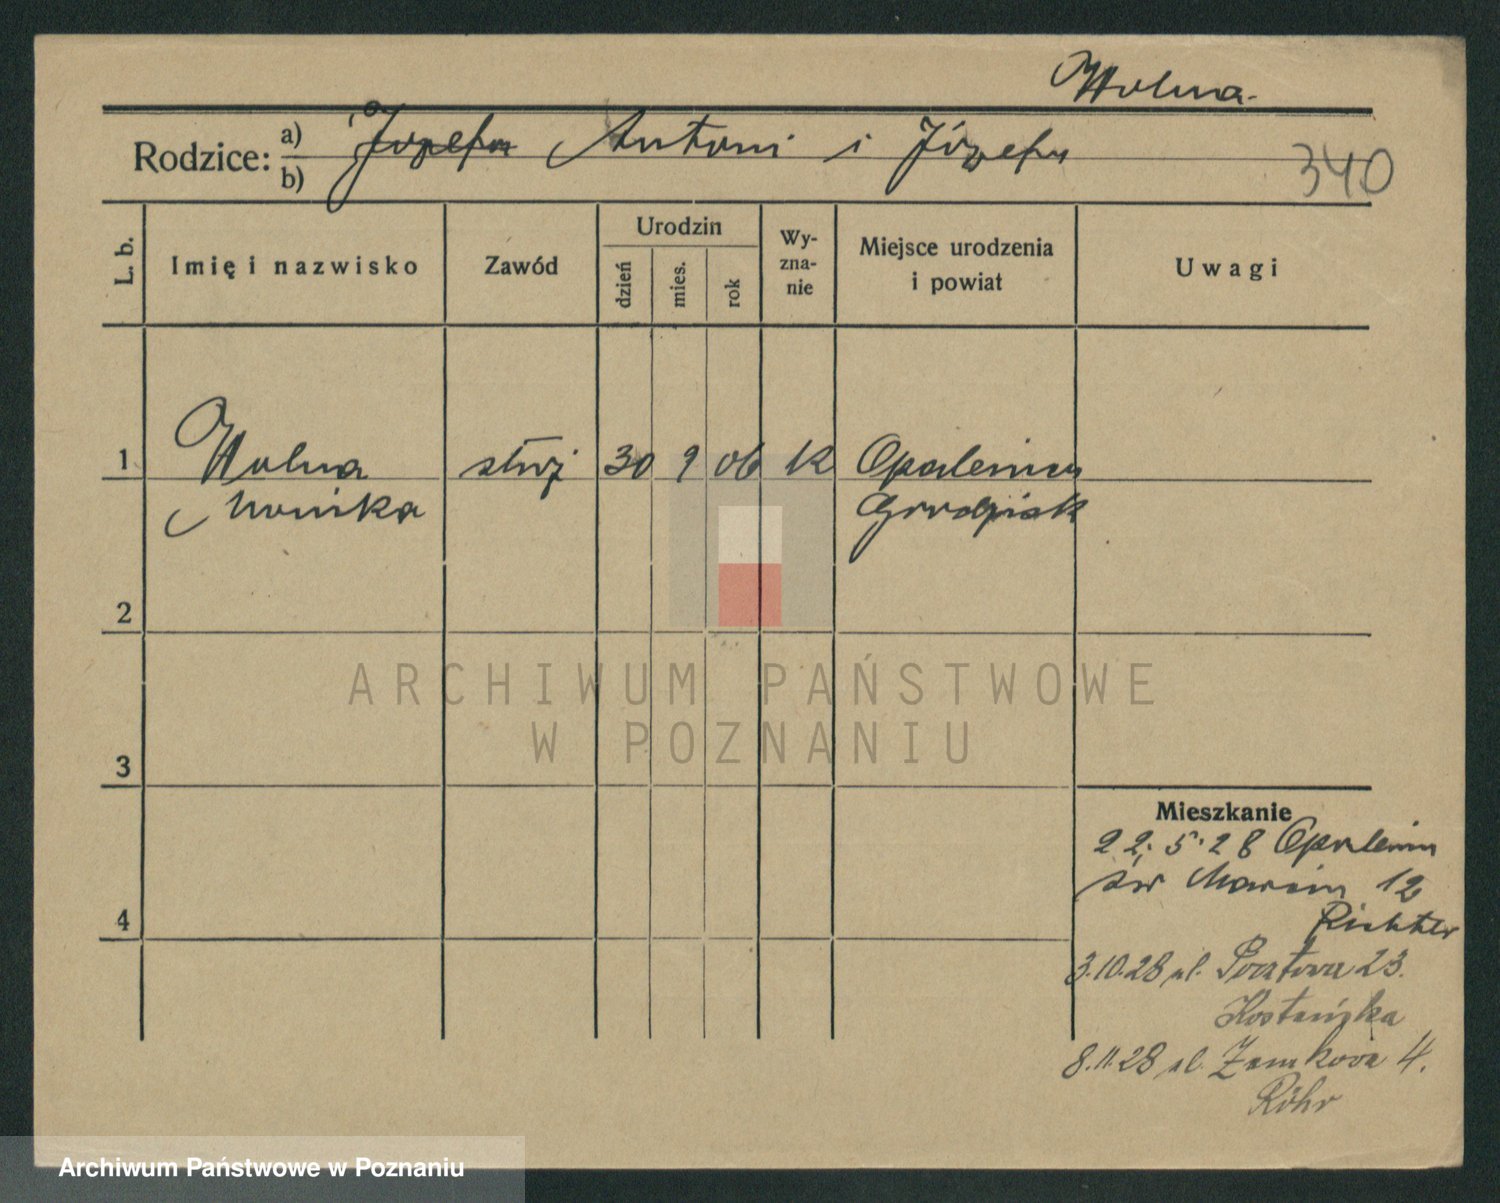 Wolna
Rodzice: a) Józefa Antoni i Józefa
b)
340
L. b.
Imię i nazwisko
Zawód
Urodzin
dzień
mies.
rok
Wy-
zna-
nie
Miejsce urodzenia
i powiat
Uwagi
1 Wolna służ 30 9 06 K Opalenica
Monika Grodzisk
2
ARCHIWUM PAŃSTWOWE
W POZNANIU
3
Mieszkanie
22.5.28 Opalenica
św Marcin 12
4
Richter
3.10.28 ul. Pocztowa 23.
Kostańska
8.11.28 ul. Zamkowa 4.
Röhr
Archiwum Państwowe w Poznaniu